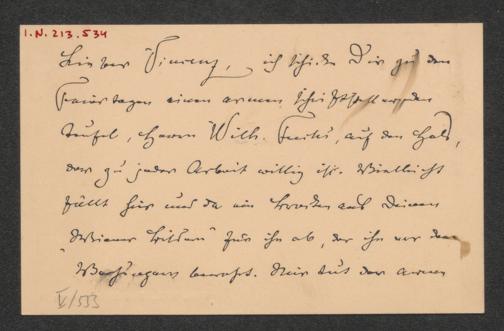 I.N. 213.534
Lieber Vincenz, ich schicke Dir zu den
Feiertagen einen armen schriftstellernden
Teufel, Herrn Wilh. auf den Hals,
der zu jeder Arbeit willig ist. Vielleicht
fällt hie und da ein Brocken aus Deinen
"Wiener Bildern" für ihn ab, der ihn vor dem
Verhungern bewahrt. Mir tut der arme
V/533